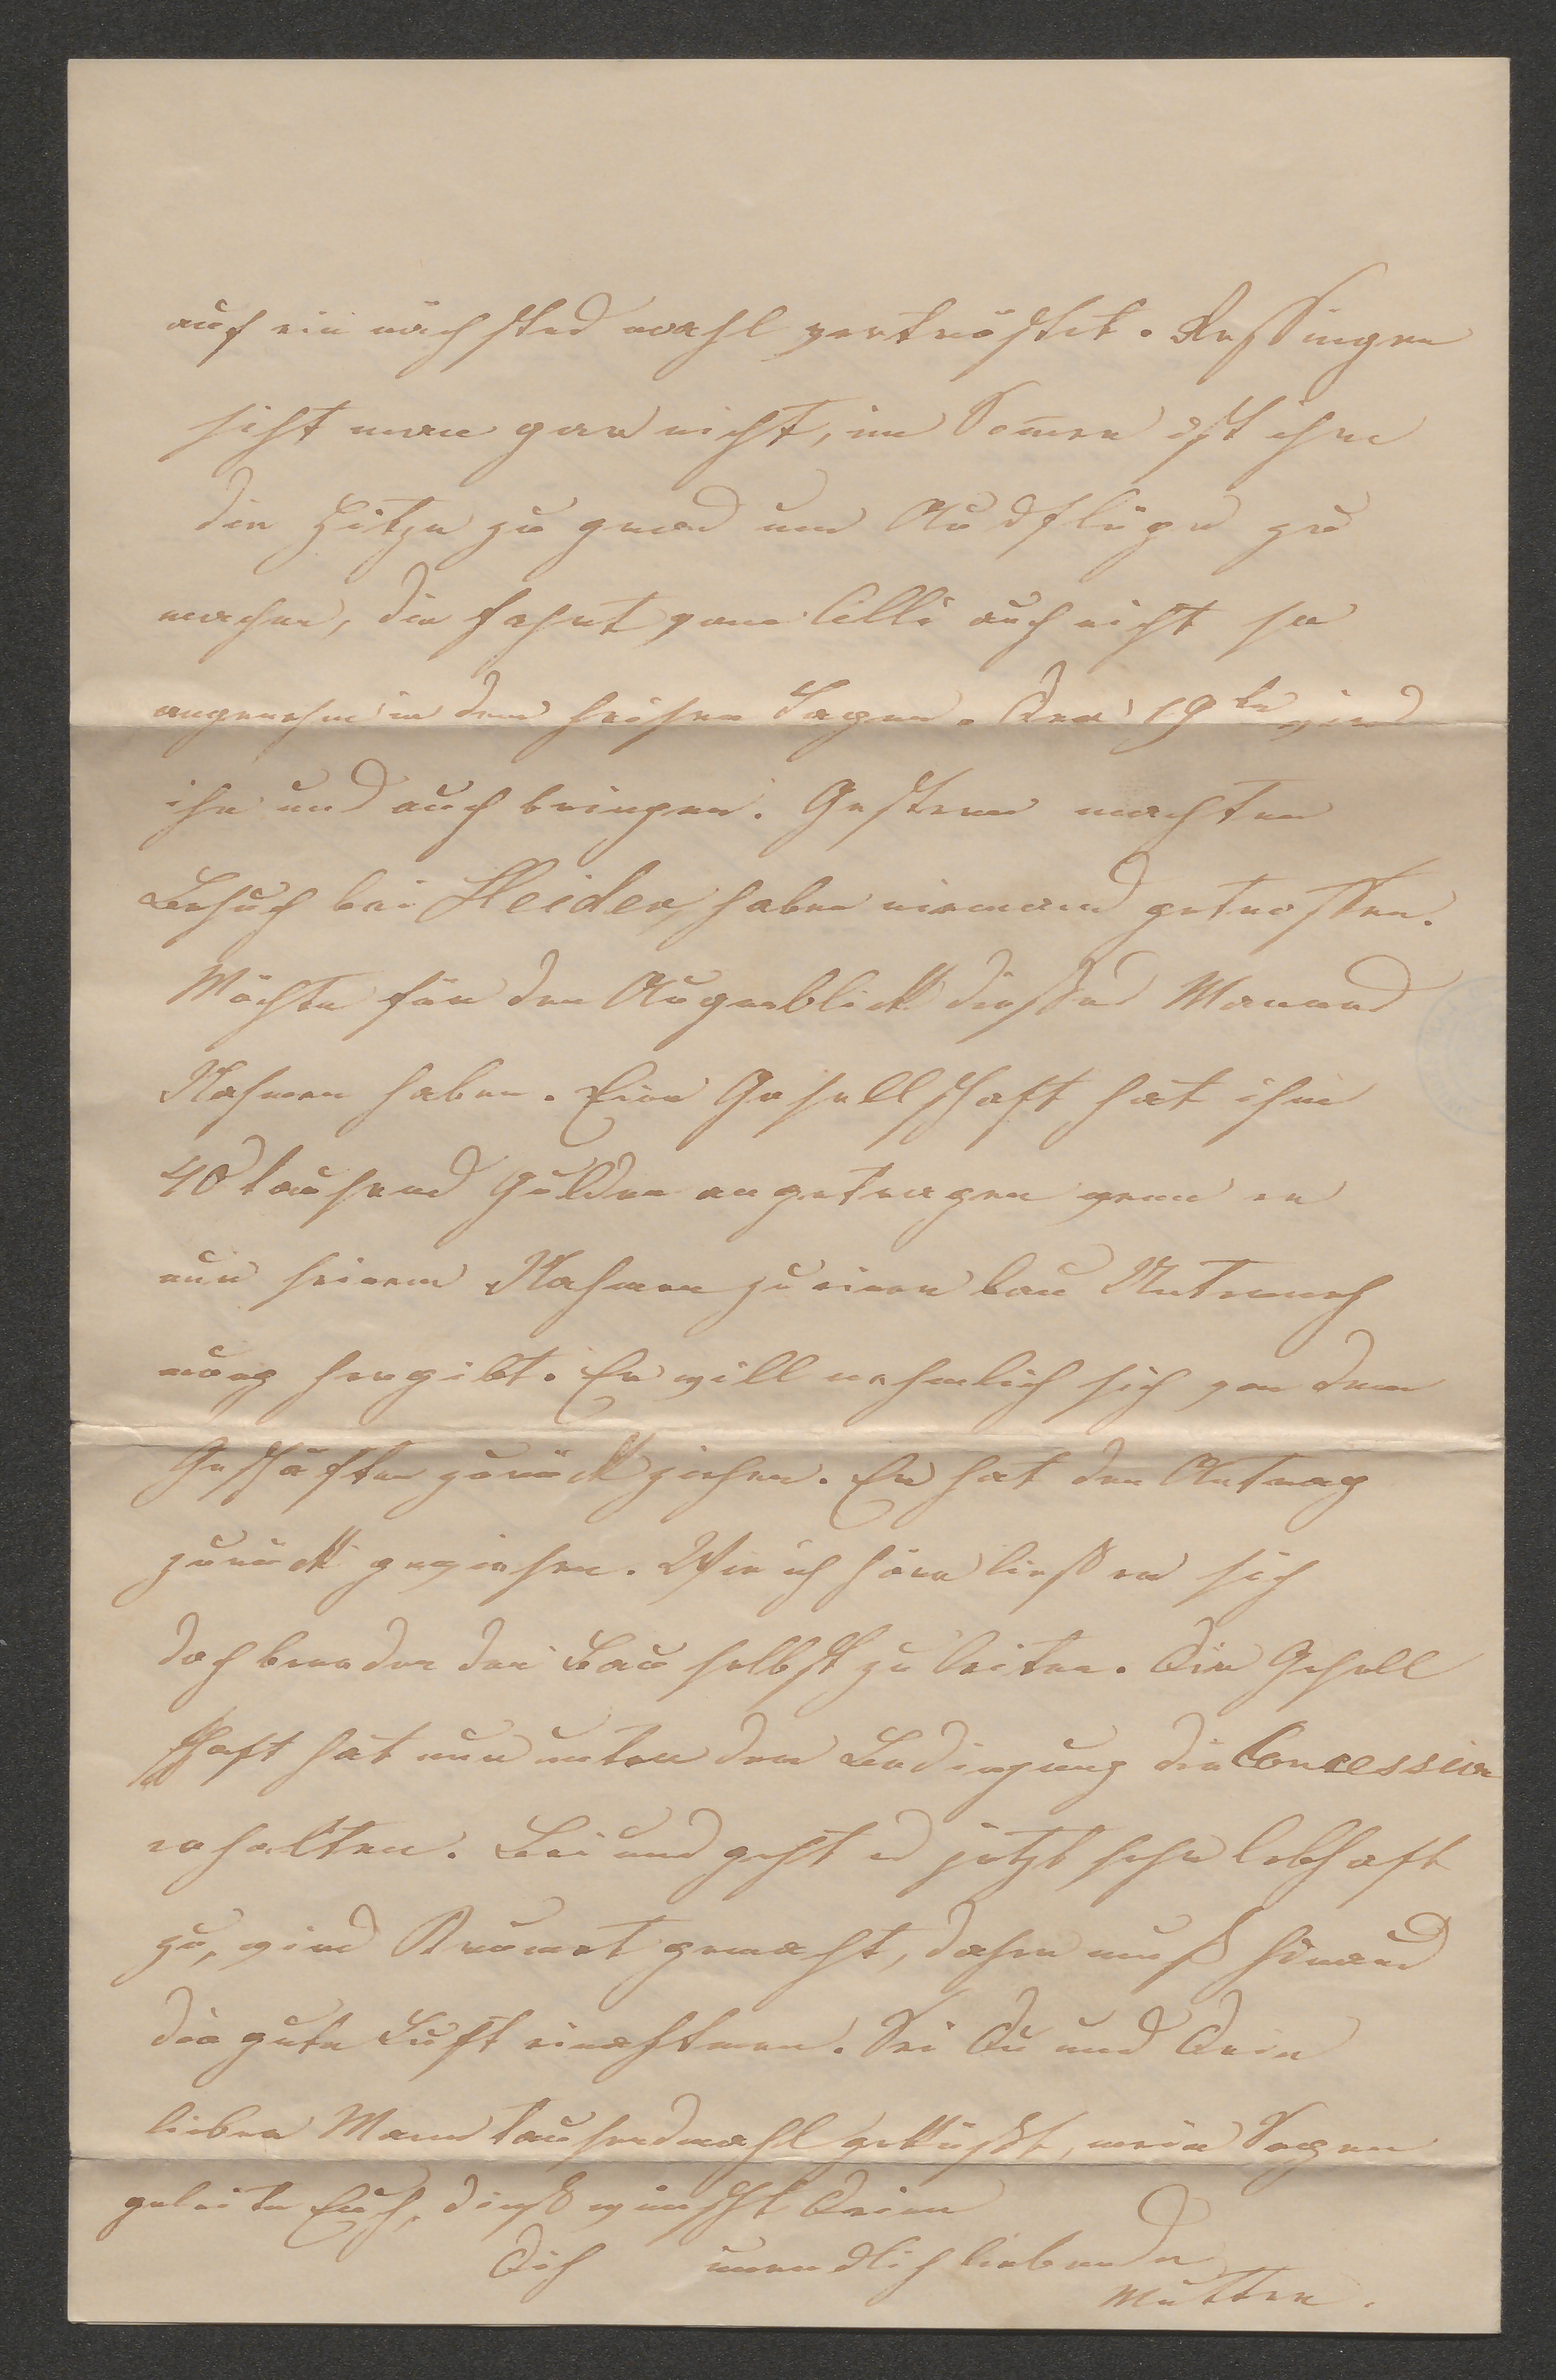 auf ein nächstes mahl vertröstet. Ressingen
siht man gar nicht, im Som̅er ist ihm
die Hitze zu gros um Ausflüge zu
machen, die Fahrt von Cilli auch nicht so
angenehm in den heisen Tagen. Der 19te wird
ihn uns auch bringen. Gestern machten
Besuch bei Heider, haben niemand getroffen.
Möchte für den Augenblick dießes Mannes
Nahmen haben. Eine Gesellschaft hat ihm
40 tausend Gulden angetragen wenn er
nur seinem Nahmen zu einen bau Unterneh
mung hergibt. Er will nehmlich sich von dem
Geschäften zurück ziehen. Er hat den Antrag
zurück gewiesen. Wie ich höre ließ er sich
doch bereden den Bau selbst zu leiten. Die Gesell
schaft hat nur unter der Bedingung die Concession
erhalten. Bei uns geht es jetzt sehr lebhaft
zu, wird Krumet gemacht, daher muß hinaus
die gute Luft einathmen. Sei Du und Dein
lieber Mann tausendmahl geküßt, mein Segen
geleite Euch, dieß wünscht Deine
Dich unendlich liebende
Mutter.